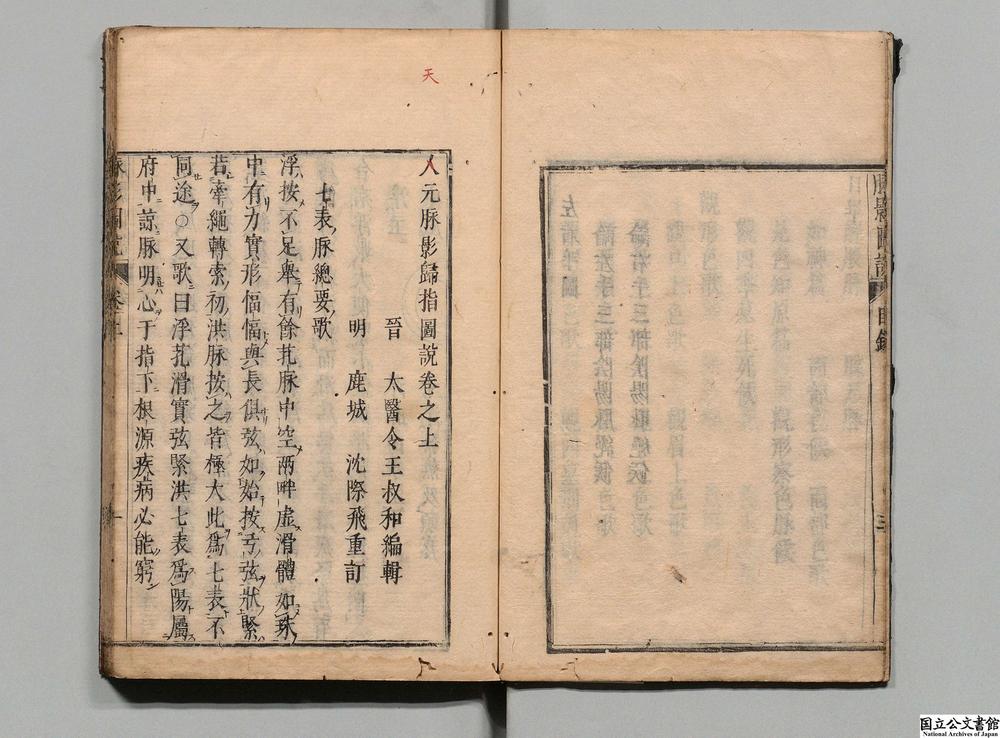 天
人元脉影歸指圖說卷之上
晉　太醫令王叔和編輯
明　鹿城　沈際飛重訂
七表脉總要歌
浮按不足舉有餘芤脉中空兩畔虛滑體如珠
中有力實形愊愊與長俱弦如始按弓弦狀緊
若牽繩轉索初洪脉按之皆極大此爲七表不
同途○又歌曰浮芤滑實弦緊洪七表爲陽屬
府中諒脉明心于指下根源疾病必能窮
国立公文書館
National Archives of Japan